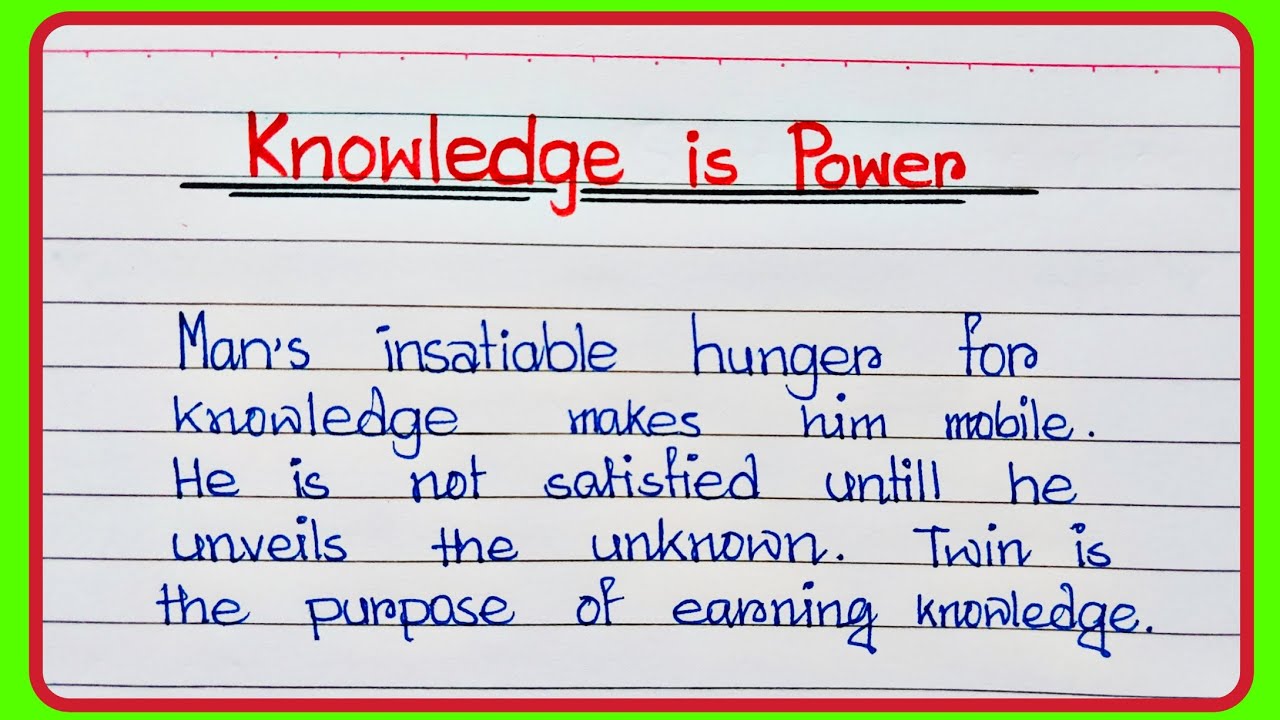 Knowledge is Power
Man's insatiable hunger for
knowledge makes him mobile.
He is not satisfied untill he
unveils the unknown. Twin is
the purpose of earning knowledge.